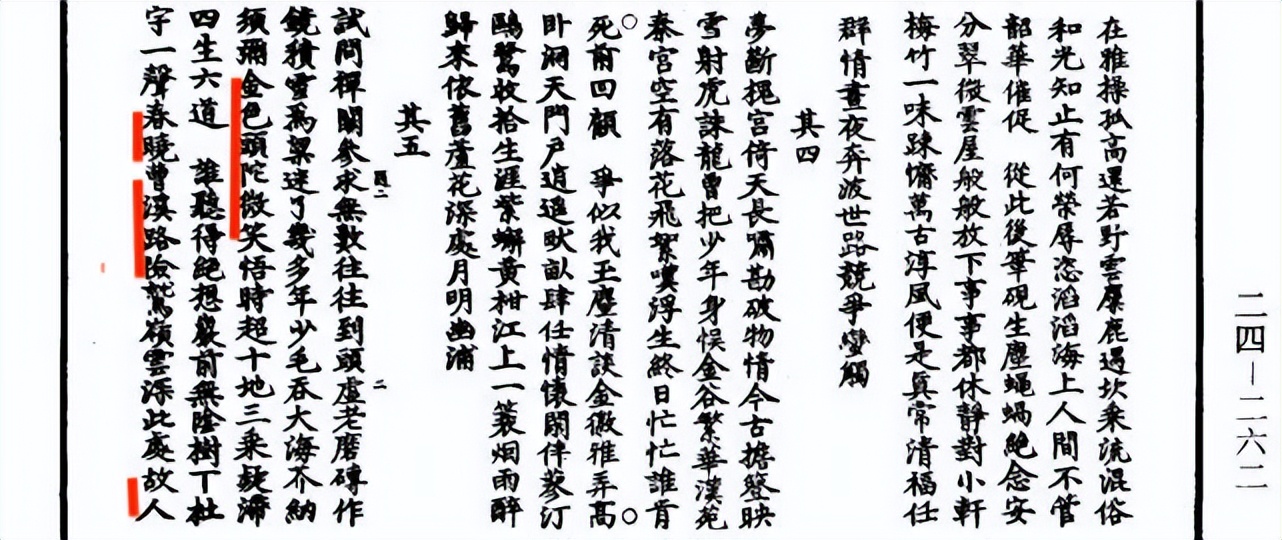 在雅操孤高還若野雲麋鹿遇坎乘流混俗
和光知止有何榮辱恣滔滔海上人間不管
韶華催促　從此後筆硯生塵蠅蝸絶念安
分翠微雲屋般般放下事事都休靜對小軒
梅竹一味踈慵萬古淳風便是真常清福任
群情晝夜奔波世路競爭蠻觸
其四
夢斷槐宮倚天長嘯勘破物情今古擔簦映
雪射虎誅龍曾把少年身悮金谷繁華漢苑
秦宮空有落花飛絮嘆浮生終日忙忙誰肯
死前四顧　爭似我玉麈清談金徽雅弄高
卧洞天門戸逍遥畎畝肆任情懷閑伴蓼汀
鷗鷺收拾生涯紫蠏黄柑江上一蓑烟雨醉
歸來依舊蘆花深處月明幽浦
其五
試問禪關參求無數往往到頭虚老磨磚作
鏡積雪爲粱迷了幾多年少毛吞大海芥納
須彌金色頭陀微笑悟時超十地三乘凝滯
四生六道　誰聽得絶想巖前無陰樹下杜
宇一聲春曉曹溪路險鷲嶺雲深此處故人
二四－二六二